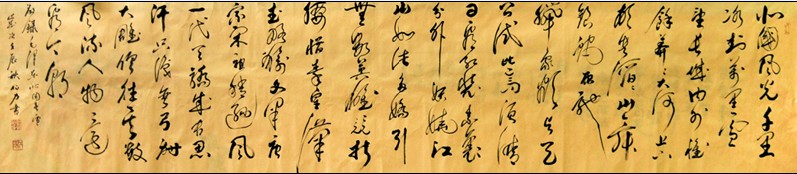 北國風光千里
冰封萬里雪
飄望長城內外惟
餘莽莽大河上下
頓失滔滔山舞
銀蛇原馳
蠟象欲與天
公試比高須晴
日看紅裝素裹
分外妖嬈江
山如此多嬌引
無數英雄競折
腰惜秦皇漢
武略輸文采唐
宗宋祖稍遜風
騷一代天驕成吉思
汗只識彎弓射
大雕俱往矣數
風流人物還
看今朝
右錄毛澤東沁園春雪